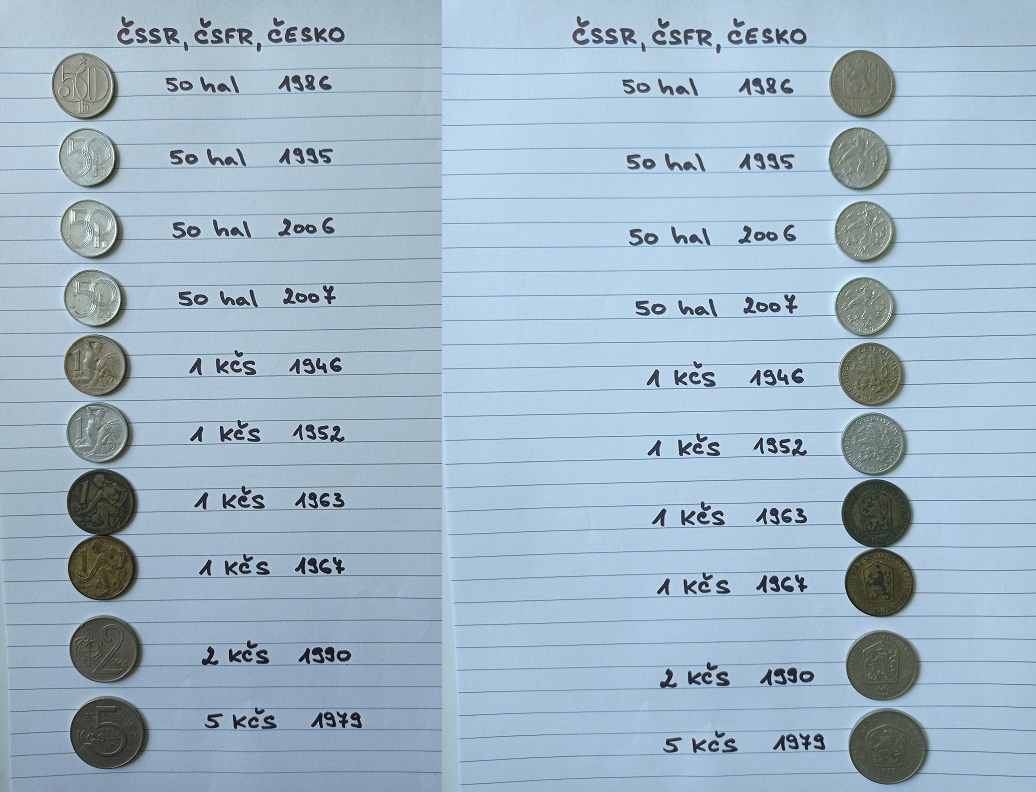 ČSSR, ČSFR, ČESKO
50 hal 1986
50 hal 1995
50 hal 2006
50 hal 2007
1 kčs 1946
1 kčs 1952
1 kčs 1963
1 kčs 1967
2 kčs 1990
5 kčs 1979
ČSSR, ČSFR, ČESKO
50 hal 1986
50 hal 1995
50 hal 2006
50 hal 2007
1 kčs 1946
1 kčs 1952
1 kčs 1963
1 kčs 1967
2 kčs 1990
5 kčs 1979
50
50
50
50
1
1
1
1
2
5